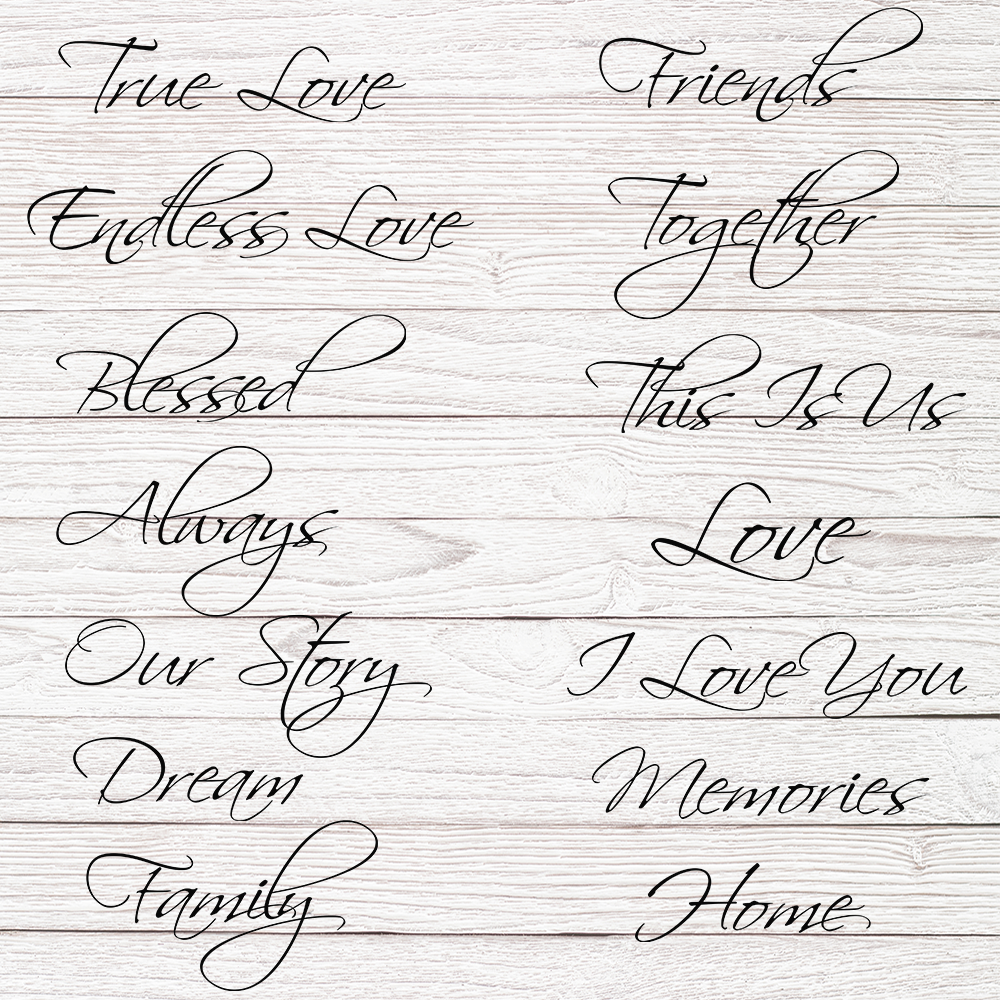 True Love
Friends
Endless Love
Together
Blessed
This Is Us
Always
Love
Our Story
I Love You
Dream
Memories
Family
Home